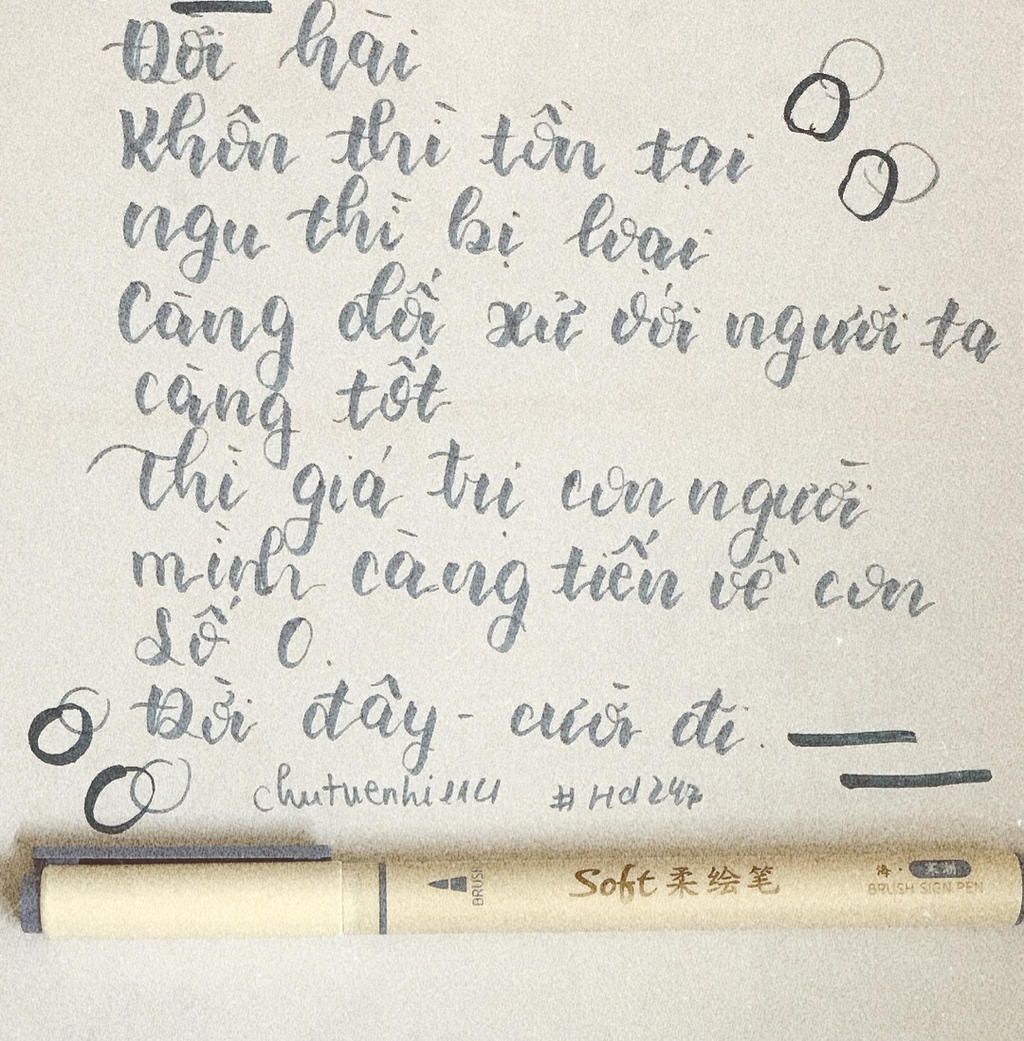 Đời hài
Khôn thì tồn tại
ngu thì bị loại
Càng đối xử với người ta
càng tốt
Thì giá trị con người
mình càng tiến về con
số 0.
Đời đây - cười đi.
chutuenhi1114 #Hd247
BRUSH
Soft 柔绘笔
BRUSH SIGN PEN